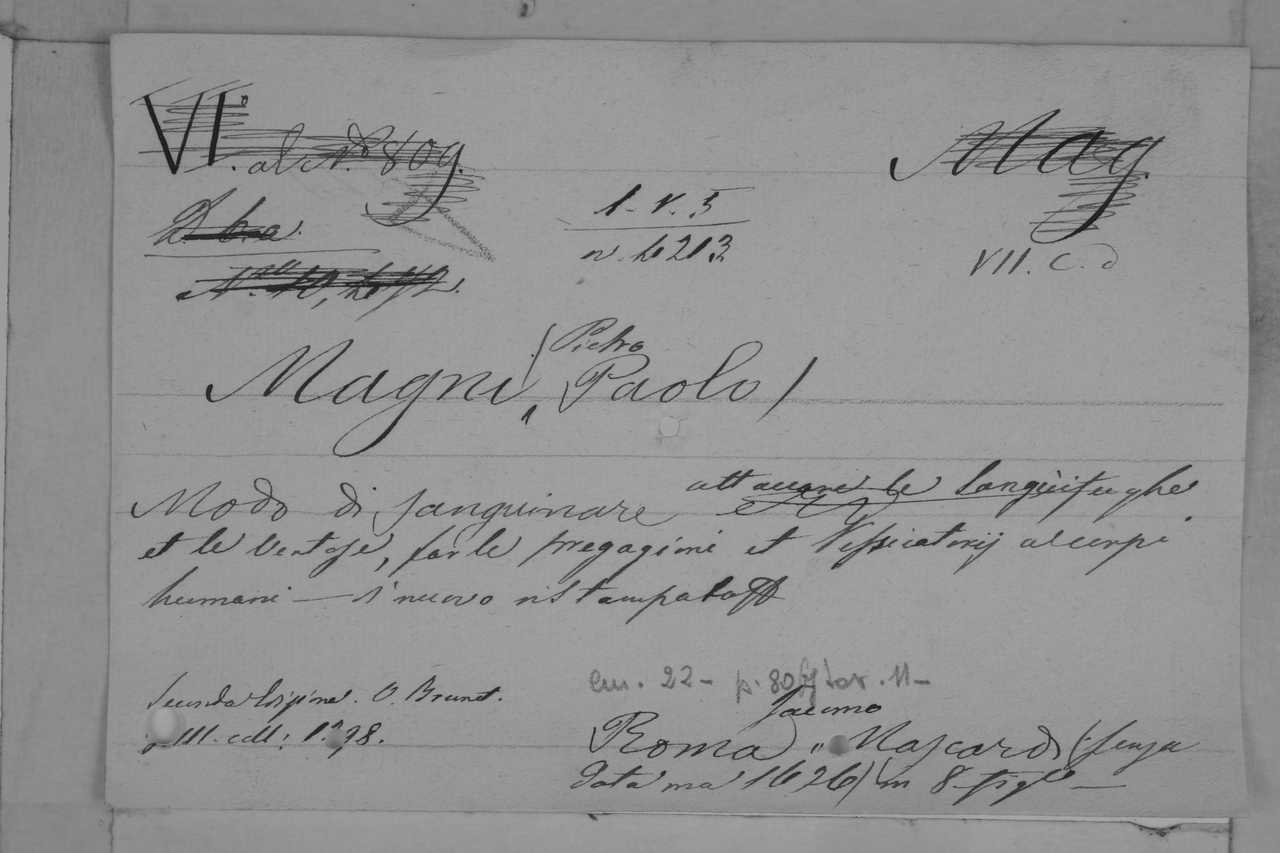 VI. al N.º 809.
Mag.
1. V. 5
n. 4213
VII. C. d
Magni, (Pietro Paolo)
Modo di sanguinare attaccare le sanguisughe
et le ventose, far le fregagioni et Vessicatorij a corpi
humani — di nuovo ristampato
Seconda edizione. V. Brunet.
III. coll: 1298.
cm. 22 – p. 80 tav. 11 –
Roma, Jacomo Mascardi (senza
data ma 1626) in 8. fig. —